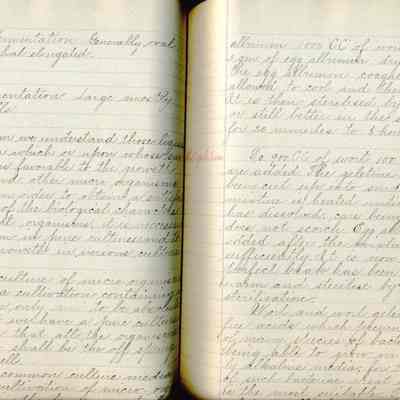 fermentation Generally oval
what elongated.
mentation Large mostly
lls.
we understand those liqui
which or upon whose su
is favorable to the growth
nd other micro organisms
In order to obtain a satisfa
of the biological character
organisms it is necessar
in pure cultures and to
growth in various culture
culture of micro organisms
a cultivation containing
only
we have a pure culture
that all the organisms
shall be the off spring
cell.
common culture media
cultivation of micro org
albumin 1000 CC of wort
5 gm of egg albumin dry
the egg albumin coagula
allowed to cool and then
It is then sterilised by
or still better in the s
for 20 minutes to ½ hour
To 900 CC of wort 100
are added. The gelatine
been cut up into small
mixture is heated until
has dissolved, care being
does not scorch. Egg alb
added after the
sufficiently. It is now
perfect break has been
warm and sterilise by
sterilization.
Wort and wort gelat
free acids which prevent
of many species of bact
being able to grow on
ly alkaline media, for
of such bacteria meat
is the most suitable